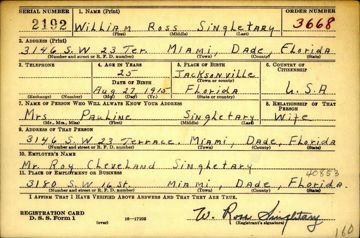 SERIAL NUMBER 1. NAME (Print) ORDER NUMBER
2192 William Ross Singletary 3668
(First) (Middle) (Last)
2. ADDRESS (Print)
3146 S.W 23 Ter. Miami, Dade, Florida
(Number and street or R. F. D. number) (Town) (County) (State)
3. TELEPHONE 4. AGE IN YEARS 5. PLACE OF BIRTH 6. COUNTRY OF CITIZENSHIP
25 Jacksonville
DATE OF BIRTH (Town or county)
Aug 27 1915 Florida U.S.A
(Exchange) (Number) (Mo.) (Day) (Yr.) (State or country)
7. NAME OF PERSON WHO WILL ALWAYS KNOW YOUR ADDRESS 8. RELATIONSHIP OF THAT PERSON
Mrs Pauline Singletary Wife
(Mr., Mrs., Miss) (First) (Middle) (Last)
9. ADDRESS OF THAT PERSON
3146 S.W 23 Terrace, Miami, Dade, Florida
(Number and street or R. F. D. number) (Town) (County) (State)
10. EMPLOYER'S NAME
Mr Roy Cleveland Singletary
11. PLACE OF EMPLOYMENT OR BUSINESS
3180 S.W 16 St. Miami, Dade, Florida.
(Number and street or R. F. D. number) (Town) (County) (State)
I AFFIRM THAT I HAVE VERIFIED ABOVE ANSWERS AND THAT THEY ARE TRUE.
REGISTRATION CARD
D. S. S. Form 1 W. Ross Singletary
(Registrant's signature)